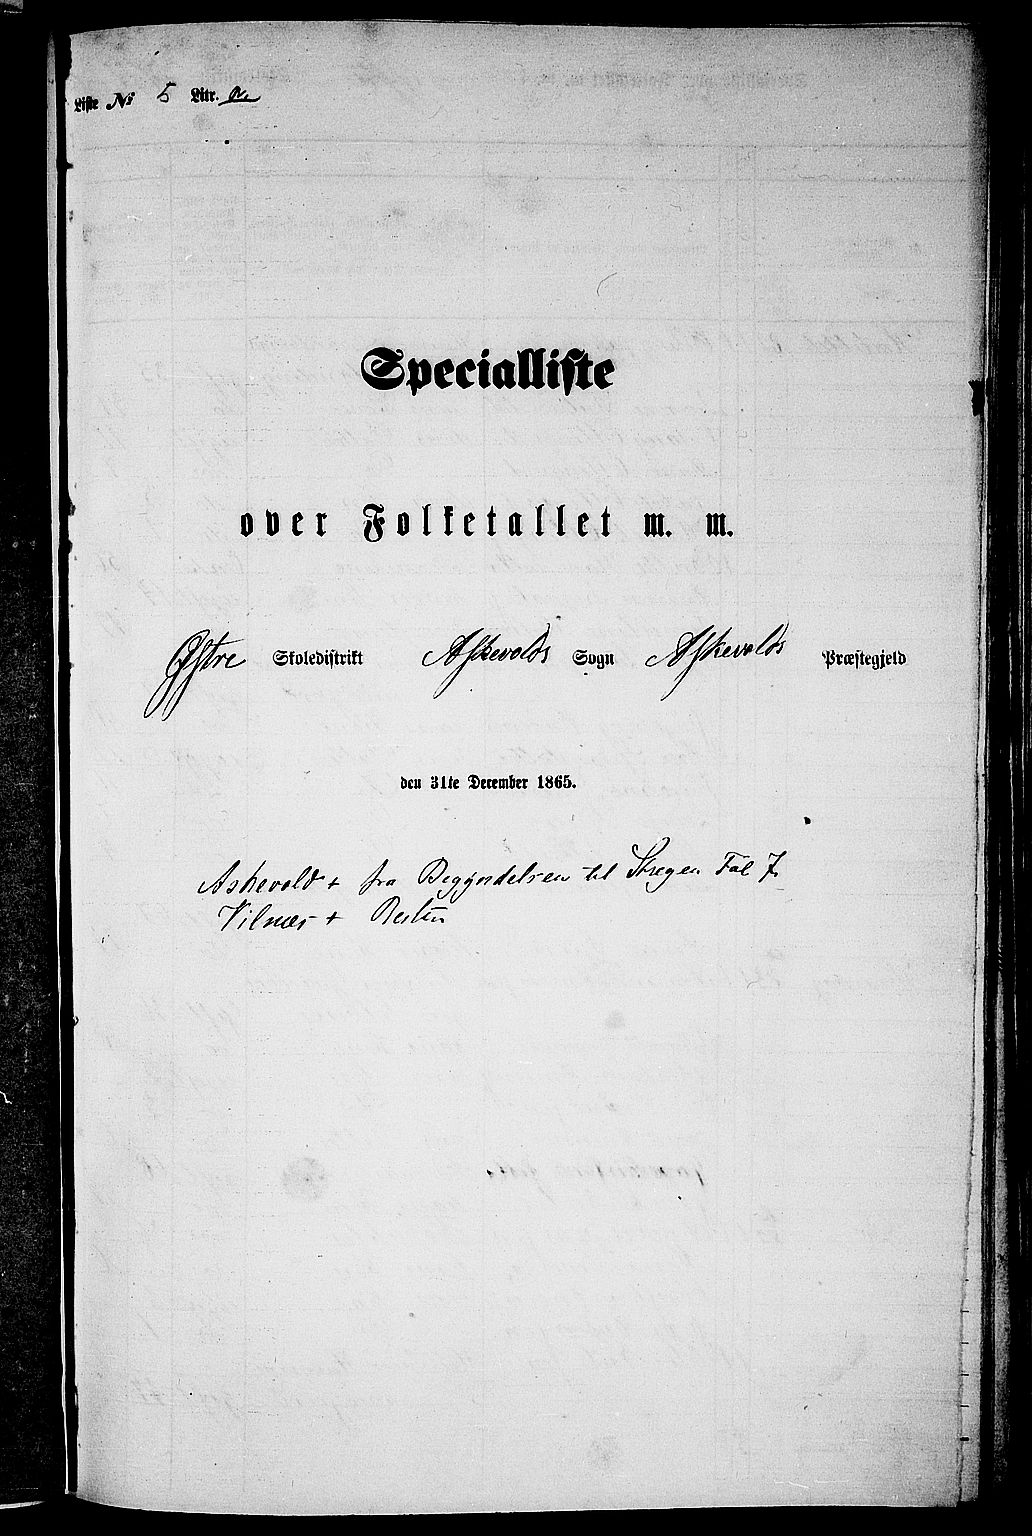 Liste No 5 Litr. a.
Specialliste
over Folketallet m. m.
Østre Skoledistrikt Askevolds Sogn Askevolds Præstegjeld
den 31te December 1865.
Askevold + fra Begyndelsen til Stregen Fol 7.
Vilnæs + Resten